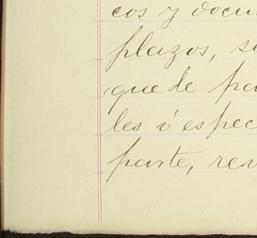 cos y docu
plazos, se
que de pa
les ó espec
parte, rev